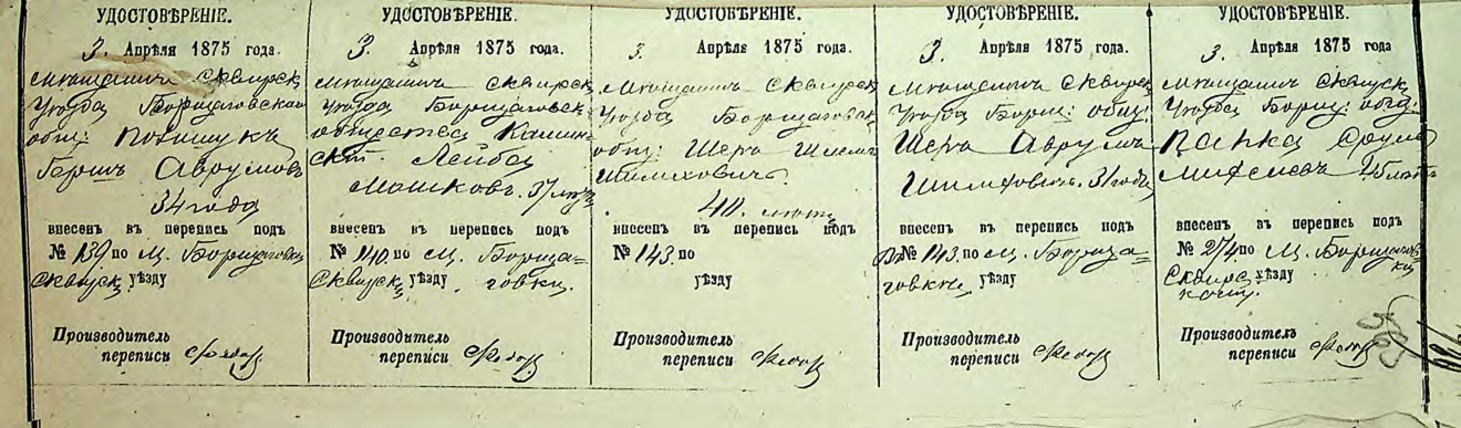 УДОСТОВѢРЕНІЕ.
3. Апрѣля 1875 года.
мѣщанинъ Сквирск
Уѣзда Борщаговскаго
общ:
Гершъ Аврумовъ
34 года
внесенъ въ перепись подъ
№ 139 по М. Борщаговка
Сквирск уѣзду
Производитель
переписи
УДОСТОВѢРЕНІЕ.
3. Апрѣля 1875 года.
мѣщанинъ Сквирск
Уѣзда Борщаговск
общества Камин-
скій. Лейба
Мошковъ. 37 лѣтъ
внесенъ въ перепись подъ
№ 140. по М. Борща-
Сквирск уѣзду говки.
Производитель
переписи
УДОСТОВѢРЕНІЕ.
3. Апрѣля 1875 года.
мѣщанинъ Сквирск
Уѣзда Борщаговск
общ: Шера
40. лѣтъ
внесенъ въ перепись подъ
№ 143. по
уѣзду
Производитель
переписи
УДОСТОВѢРЕНІЕ.
3. Апрѣля 1875 года.
мѣщанинъ Сквирск
Уѣзда Борщ: общ:
Шера Аврумъ
31 года
внесенъ въ перепись подъ
№ 143. по М. Борща-
говкѣ уѣзду
Производитель
переписи
УДОСТОВѢРЕНІЕ.
3. Апрѣля 1875 года
мѣщанинъ Сквирск
Уѣзда Борщ: общ.
Срулъ
25 лѣтъ
внесенъ въ перепись подъ
№ 274 по М. Борщагов-
ки
Сквирс- уѣзду
кому.
Производитель
переписи